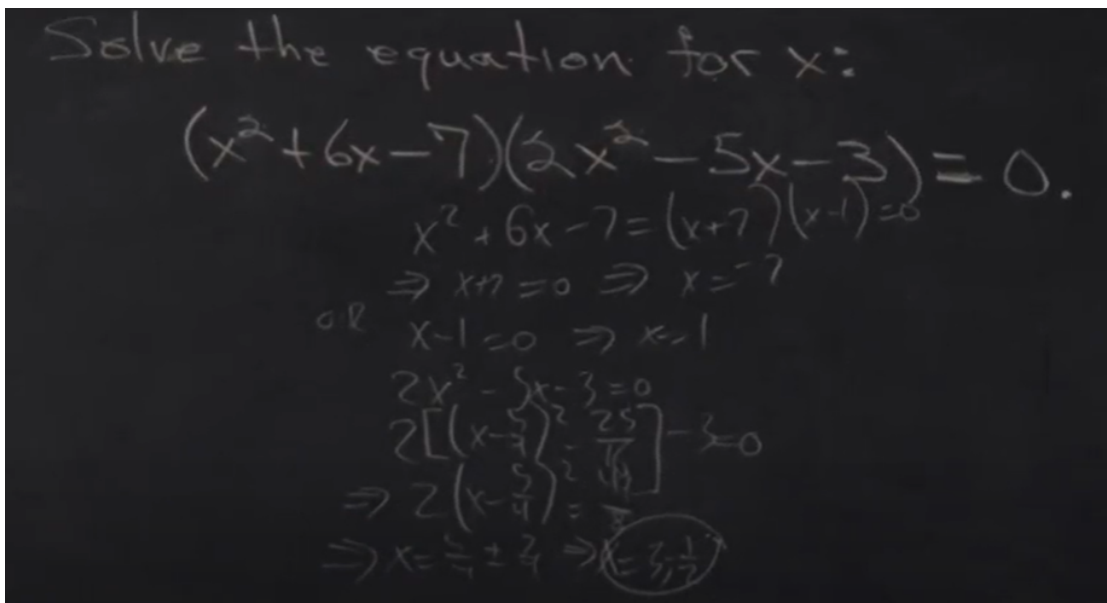 Solve the equation for x:
(x² + 6x − 7)(2x² − 5x − 3) = 0.
x² + 6x − 7 = (x+7)(x−1) = 0
⇒ x+7 = 0 ⇒ x = −7
OR x−1 = 0 ⇒ x = 1
2x² − 5x − 3 = 0
2[(x − 5/4)² − 25/16] − 3 = 0
⇒ 2(x − 5/4)² =
⇒ x = 5/4 ±